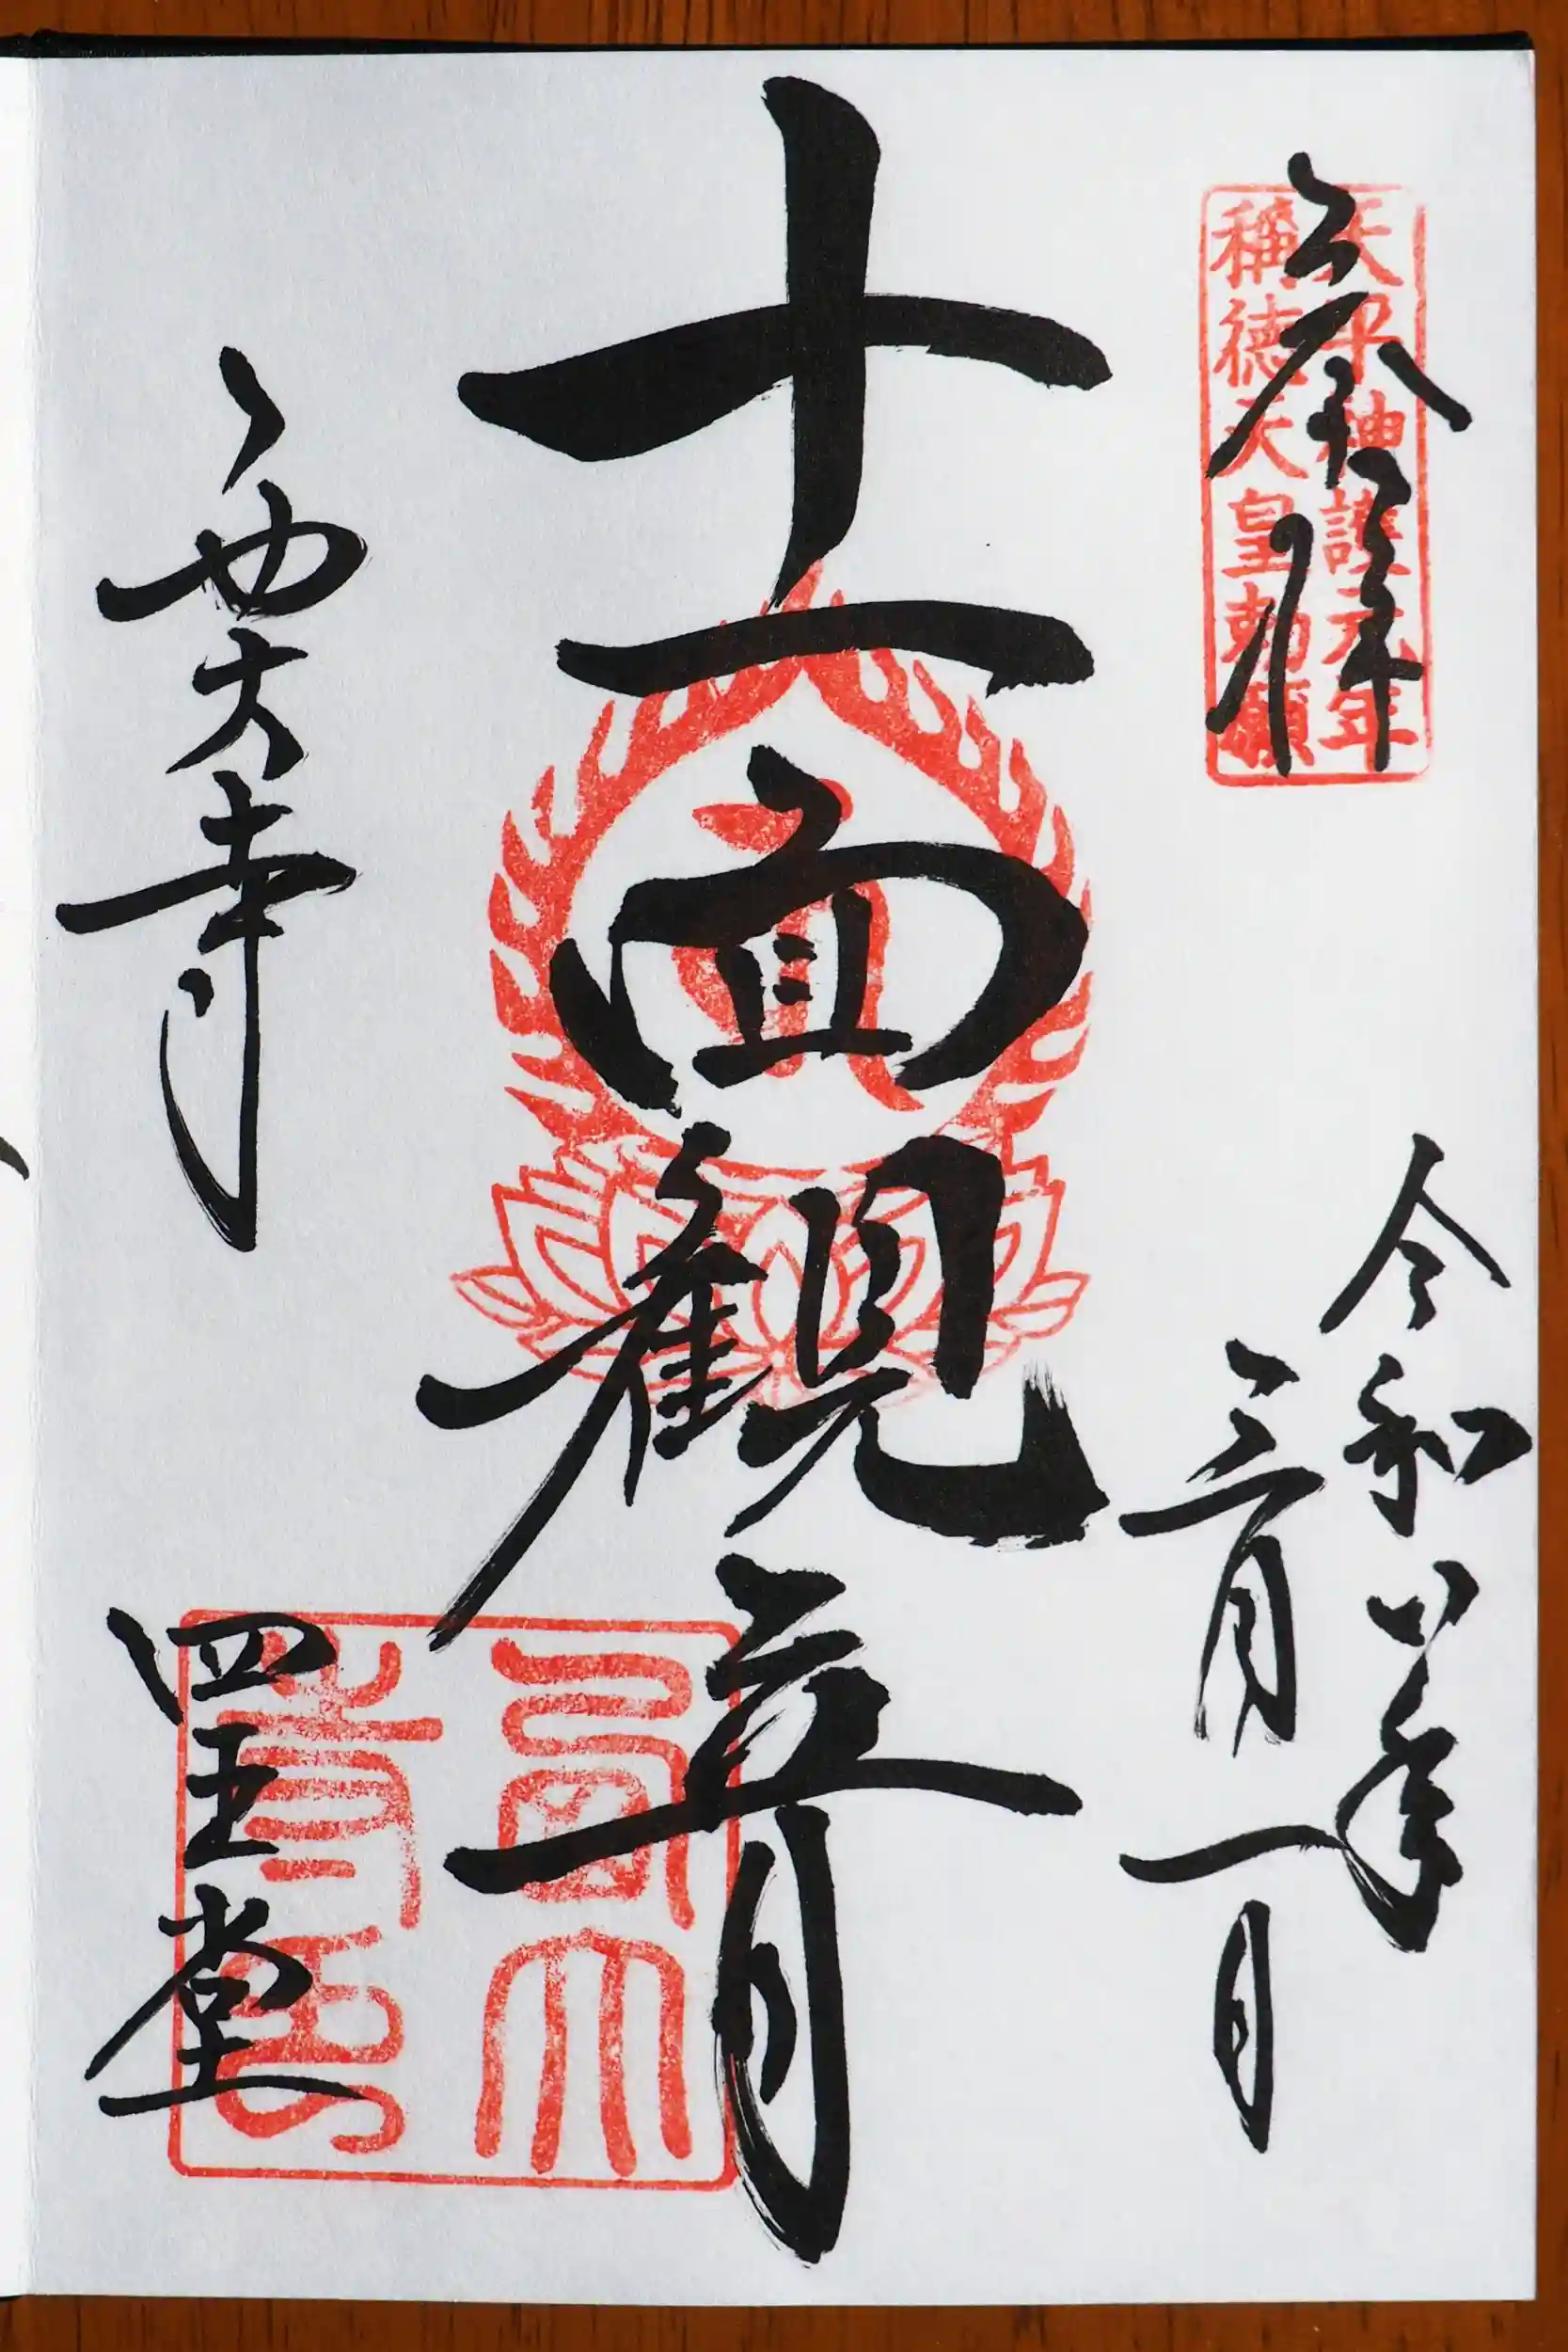 奉拝
天平神護元年
稱徳天皇勅願
令和八年
三月一日
十一面観音
西大寺
四王堂
西大
寺印